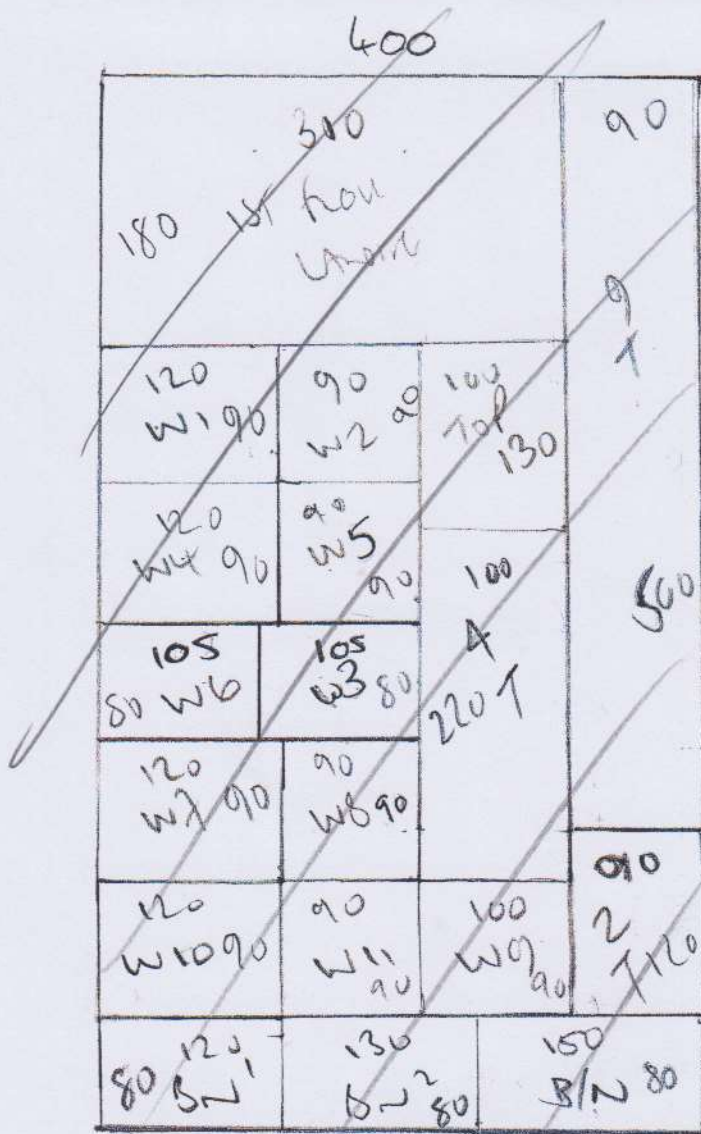 400
310
180 1st Floor
90
9
T
500
120
W1 90
90
W2 90
100
Top
130
120
W4 90
90
W5
90
100
4
220 T
105
80 W6
105
W3 80
120
W7 90
90
W8 90
120
W10 90
90
W11
90
100
W9
90
90
2
T 120
120
80 BN 1
130
BN 2
80
150
B/N 80